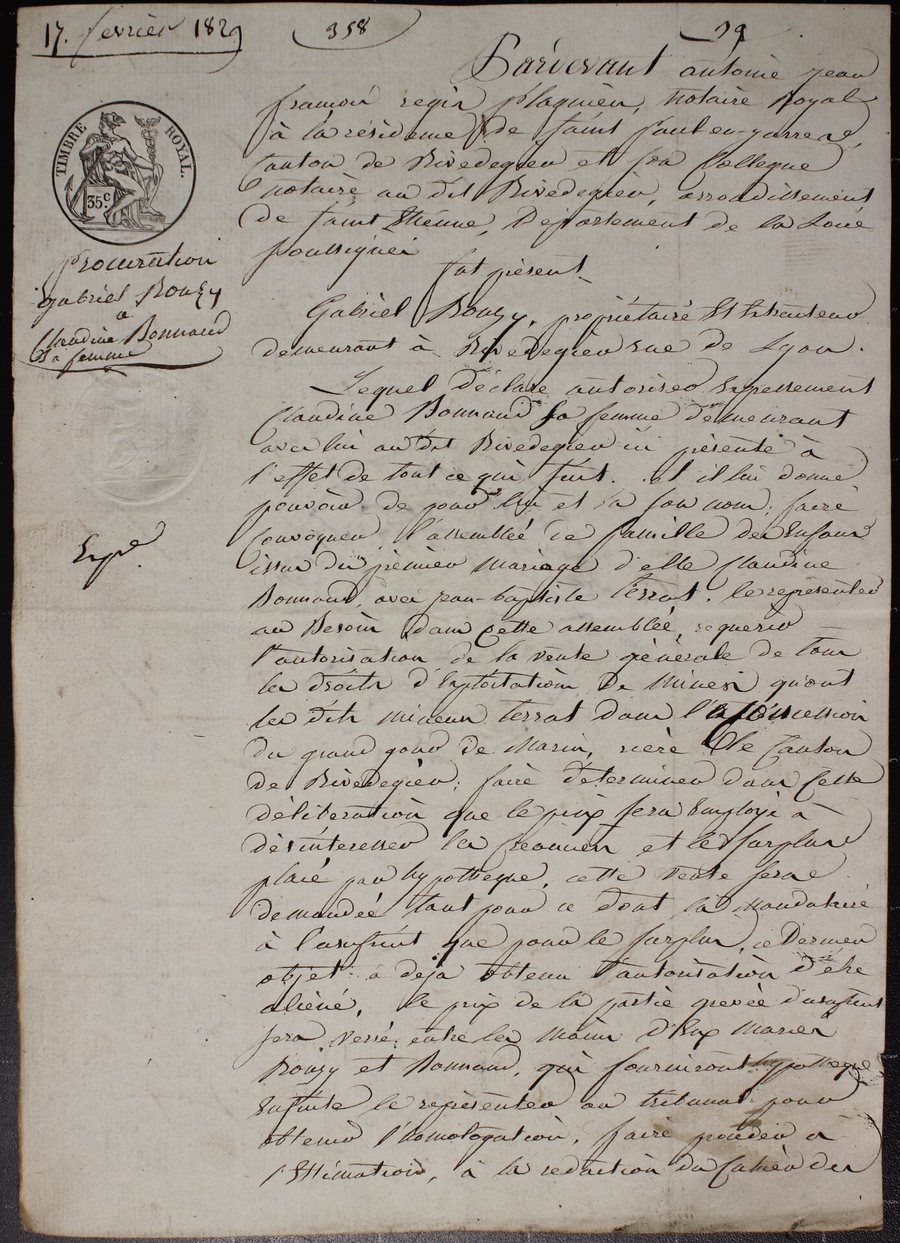 17. fevrier 1829
358
29
TIMBRE ROYAL.
35c
procuration
gabriel Rouzy
a
Claudine Bonnand
Sa femme
Expé
Pardevant antoine jean
francois regis plagnieu, notaire Royal
à la résidence de saint paul en-jarrere,
Canton de Rivedegiéu et son Collegue
notaire au dit Rivedegiéu, arrondissement
de saint Etienne, Département de la Loire
soussignés
fut présent
Gabriel Rouzy, propriétaire
demeurant à Rivedegiéu rue de Lyon.
Lequel déclare autoriser Expressement
Claudine Bonnand sa femme demeurant
avec lui au dit Rivedegiéu ici présente à
l'effet de tout ce qui suit. et il lui donne
pouvoir de pour lui et en son nom, faire
Convoquer l'assemblée de famille des Enfans
issus du premier mariage d'elle Claudine
Bonnand, avec jean-baptiste terrat. le representer
au Besoin dans cette assemblée, requerir
l'autorisation de la vente générale de tous
les droits d'Exploitation de mines qu'ont
les dits mineurs terrat dans la
du grand gour de Marin, riere le Canton
de Rivedegiéu; faire determiner dans Cette
déliberation que le prix sera Employé à
désinteresser les Créanciers et le Surplus
placé par hypotheque, cette vente sera
demandée tant pour ce dont la Mandataire
à l'usufruit que pour le surplus, ce Dernier
objet a déja obtenu l'autorisation d'être
aliéné, le prix de la partie grevée d'usufruit
sera versé entre les mains d'Eux mariés
Rouzy et Bonnand, qui fourniront hypotheque
Ensuite le representer au tribunal pour
obtenir l'homologation, faire proceder a
l'Estimation, à la redaction du Cahier des